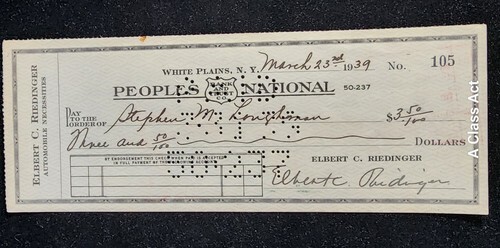 WHITE PLAINS, N. Y. March 23rd 1939 No. 105
PEOPLES BANK AND TRUST CO. NATIONAL 50-237
PAY TO THE ORDER OF Stephen M. $3 50/100
Three and 50/100 DOLLARS
AT ENDORSEMENT THIS CHECK WHEN PAID IS ACCEPTED
IN FULL PAYMENT OF THE FOLLOWING ACCOUNT
ELBERT C. RIEDINGER
Elbert C. Riedinger
ELBERT C. RIEDINGER
AUTOMOBILE NECESSITIES
A Class Act